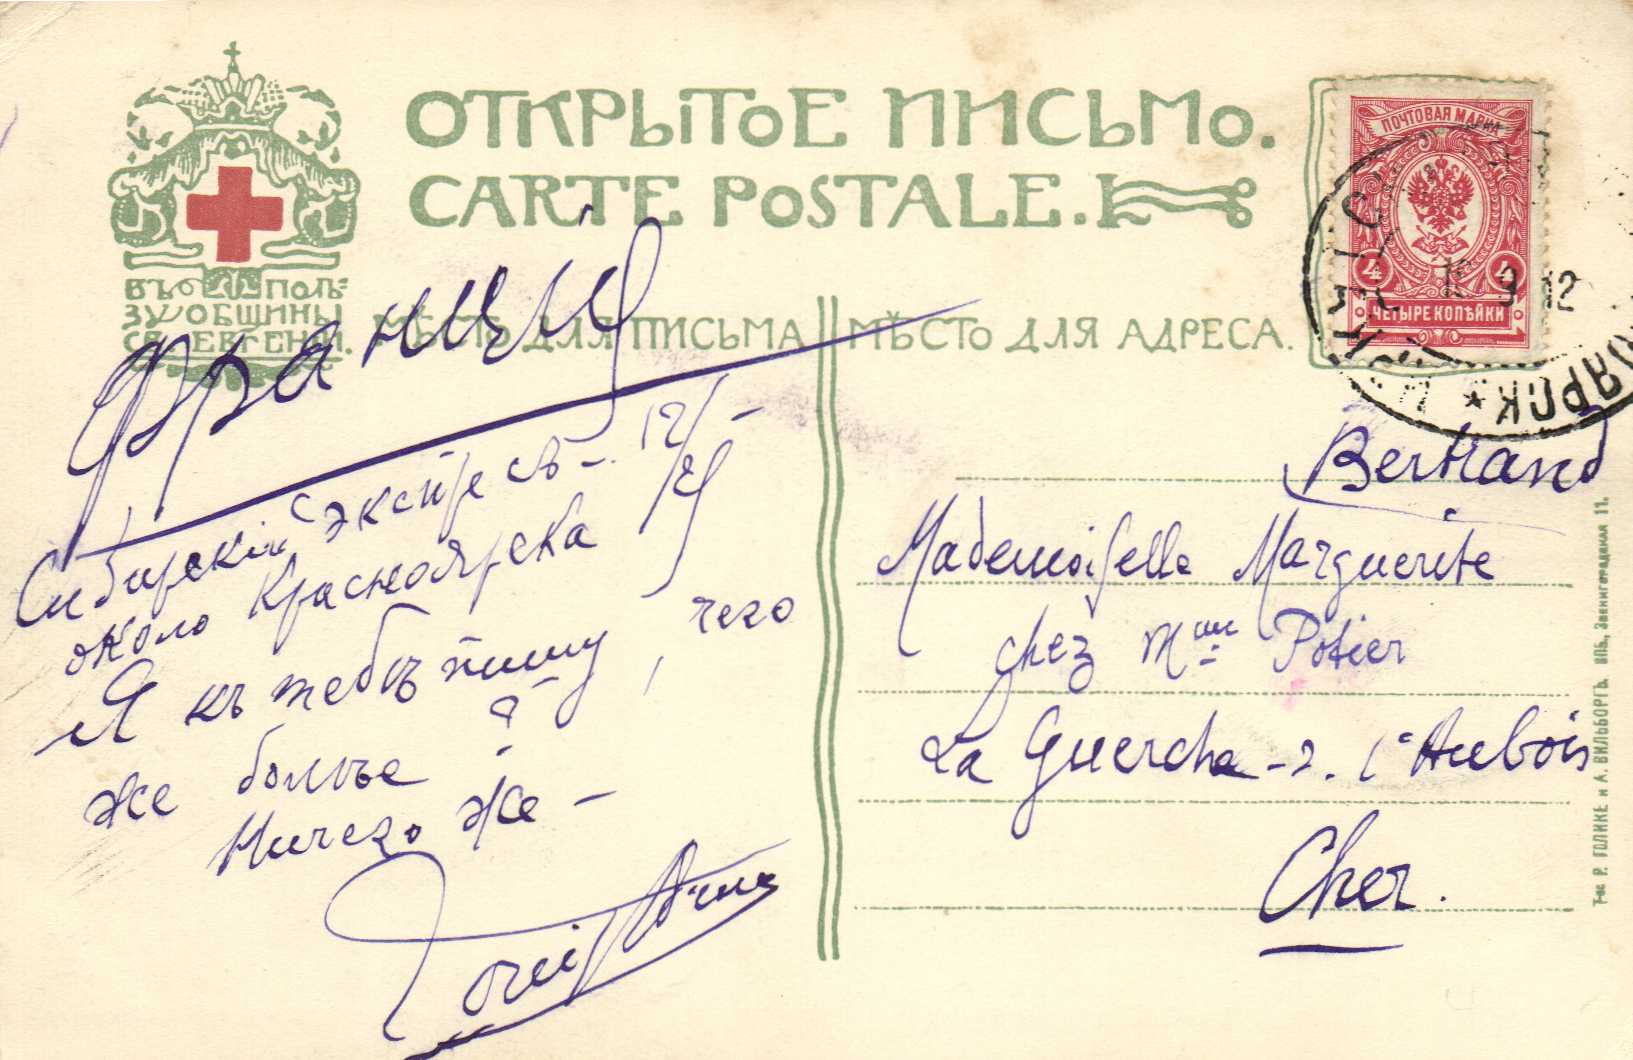 ОТКРЫТОЕ ПИСЬМО.
CARTE POSTALE.
ВЪ ПОЛЬ=
ЗУ ОБЩИНЫ
СВ. ЕВГЕНІИ.
МѢСТО ДЛЯ ПИСЬМА
МѢСТО ДЛЯ АДРЕСА.
ПОЧТОВАЯ МАРКА
4 4
ЧЕТЫРЕ КОПѢЙКИ
9 12
ЯРСК *
Франція
Сибирскій Экспресъ - 12/
около Красноярска
Я къ тебѣ пишу, чего
же болѣе ?
Ничего же -
Bertrand
Mademoiselle Marguerite
chez Mme Potier
La Guerche-s. l'Aubois
Cher.
Т-во Р. ГОЛИКЕ и А. ВИЛЬБОРГЪ. СПБ., Звенигородская 11.